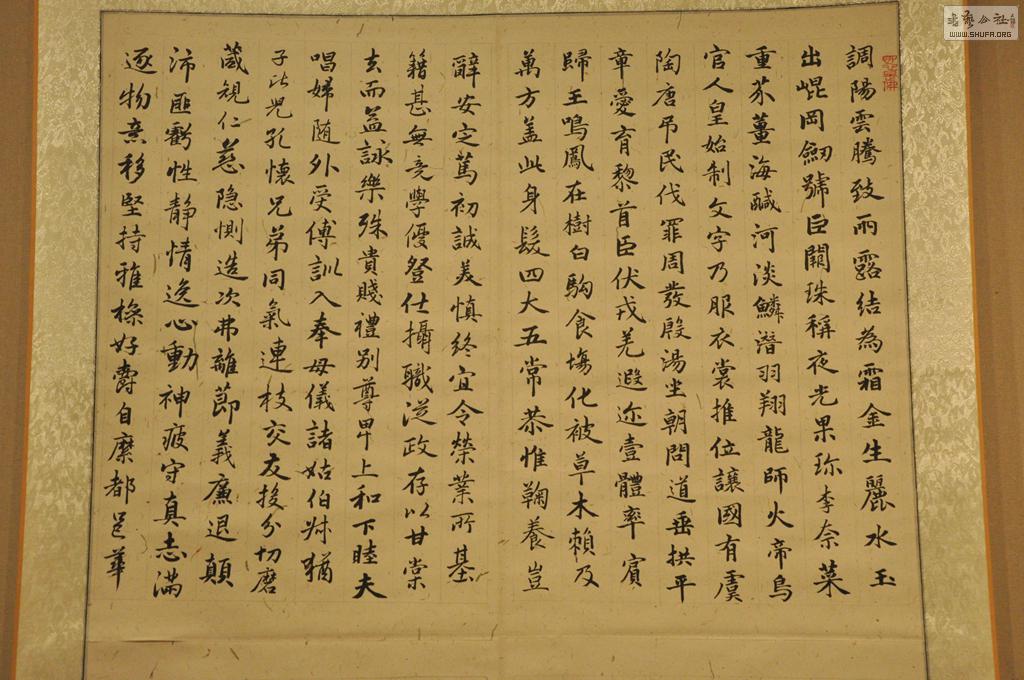 調陽雲騰致雨露結為霜金生麗水玉
出崐岡劒號巨闕珠稱夜光果珎李柰菜
重芥薑海鹹河淡鱗潛羽翔龍師火帝鳥
官人皇始制文字乃服衣裳推位讓國有虞
陶唐弔民伐罪周發殷湯坐朝問道垂拱平
章愛育黎首臣伏戎羌遐迩壹體率賓
歸王鳴鳳在樹白駒食場化被草木賴及
萬方盖此身髮四大五常恭惟鞠養豈
辭安定篤初誠美慎終宜令榮業所基
籍甚無竟學優登仕攝職從政存以甘棠
去而益詠樂殊貴賤禮別尊卑上和下睦夫
唱婦随外受傅訓入奉母儀諸姑伯叔猶
子比兒孔懷兄弟同氣連枝交友投分切磨
箴規仁慈隐惻造次弗離節義廉退顛
沛匪虧性静情逸心動神疲守真志滿
逐物意移堅持雅操好爵自縻都邑華
書藝公社
WWW.SHUFA.ORG